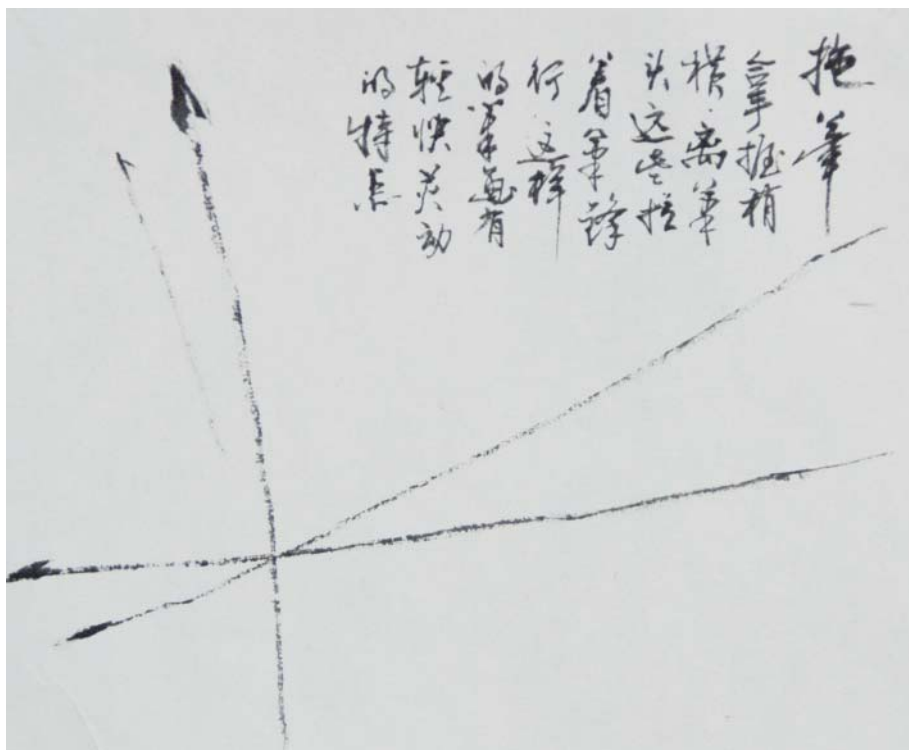 拖笔
拿握稍
横·离笔
头远些拉
着笔锋
行·这样
的笔画有
轻快灵动
的特点